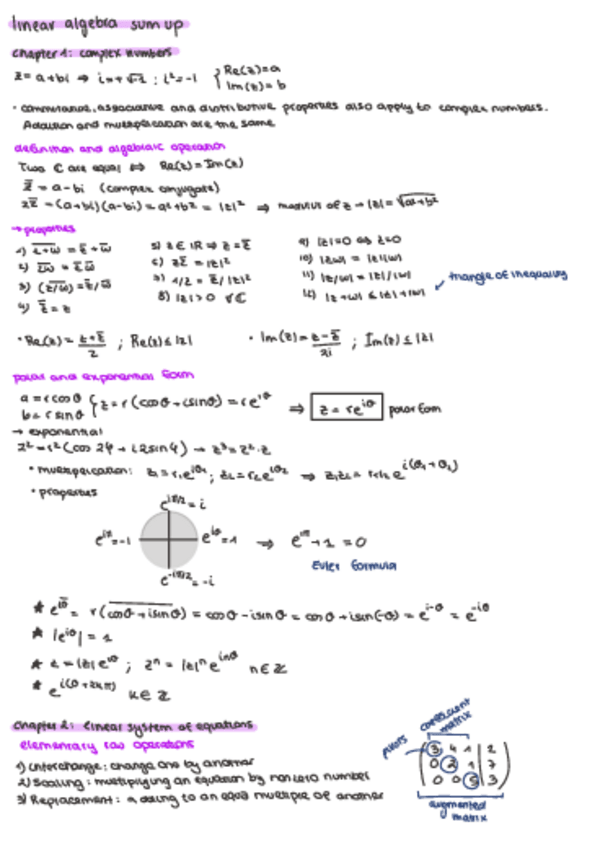 linear algebra sum up
chapter 1: complex numbers
z = a+bi ⇒ i=+√-1 ; i²=-1 { Re(z)=a
Im(z)=b
• commutative, associative and distributive properties also apply to complex numbers.
Addition and multiplication are the same
definition and algebraic operation
Two ℂ are equal ⇔ Re(z)=Im(z)
z̅ = a-bi (complex conjugate)
zz̅ =(a+bi)(a-bi)=a²+b²=|z|² ⇒ modulus of z → |z|=√a²+b²
→ properties
1) \overline{z+w} = z̅+w̅ 5) z ∈ ℝ ⇒ z=z̅ 9) |z|=0 ⇔ z=0
2) \overline{zw} = z̅ w̅ 6) zz̅ = |z|² 10) |zw| = |z||w|
3) \overline{(z/w)} = z̅/w̅ 7) 1/z = z̅/|z|² 11) |z/w| = |z|/|w|
4) \overline{z̅} = z 8) |z|>0 ∀ℂ 12) |z+w| ≤ |z|+|w| triangle of inequality
• Re(z)= (z+z̅)/2 ; Re(z)≤|z| • Im(z)= (z-z̅)/2i ; Im(z)≤|z|
polar and exponential form
a=rcosθ
b=rsinθ { z=r(cosθ+isinθ)=re^{iθ} ⇒ z=re^{iθ} polar form
→ exponential
z²=r²(cos 2φ+i2sinφ) → z³=z²·z
• multiplication: z₁=r₁e^{iθ₁} ; z₂=r₂e^{iθ₂} ⇒ z₁z₂=r₁r₂e^{i(θ₁+θ₂)}
• properties
e^{iπ/2}=i
e^{iπ}=-1 e^{iθ}=1 ⇒ e^{iπ}+1=0
e^{-iπ/2}=-i Euler formula
★ \overline{e^{iθ}} = r(\overline{cosθ+isinθ}) = cosθ-isinθ = cosθ+isin(-θ) = e^{i-θ} = e^{-iθ}
★ |e^{iθ}|=1
★ z=|z|e^{iθ} ; zⁿ=|z|ⁿe^{inθ} n∈ℤ
★ e^{i(θ+2kπ)} k∈ℤ
chapter 2: linear system of equations
elementary row operations
1) Interchange: change one by another
2) Scaling: multiplying an equation by nonzero number
3) Replacement: adding to an equa multiple of another
coefficient
matrix
pivots
3 4 1 | 2
0 2 1 | 7
0 0 5 | 3
augmented
matrix